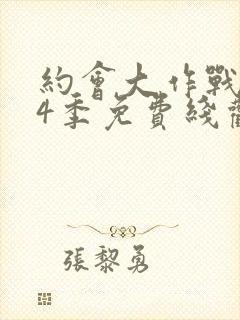 約會大作戰
4季免費綫觀
張黎勇